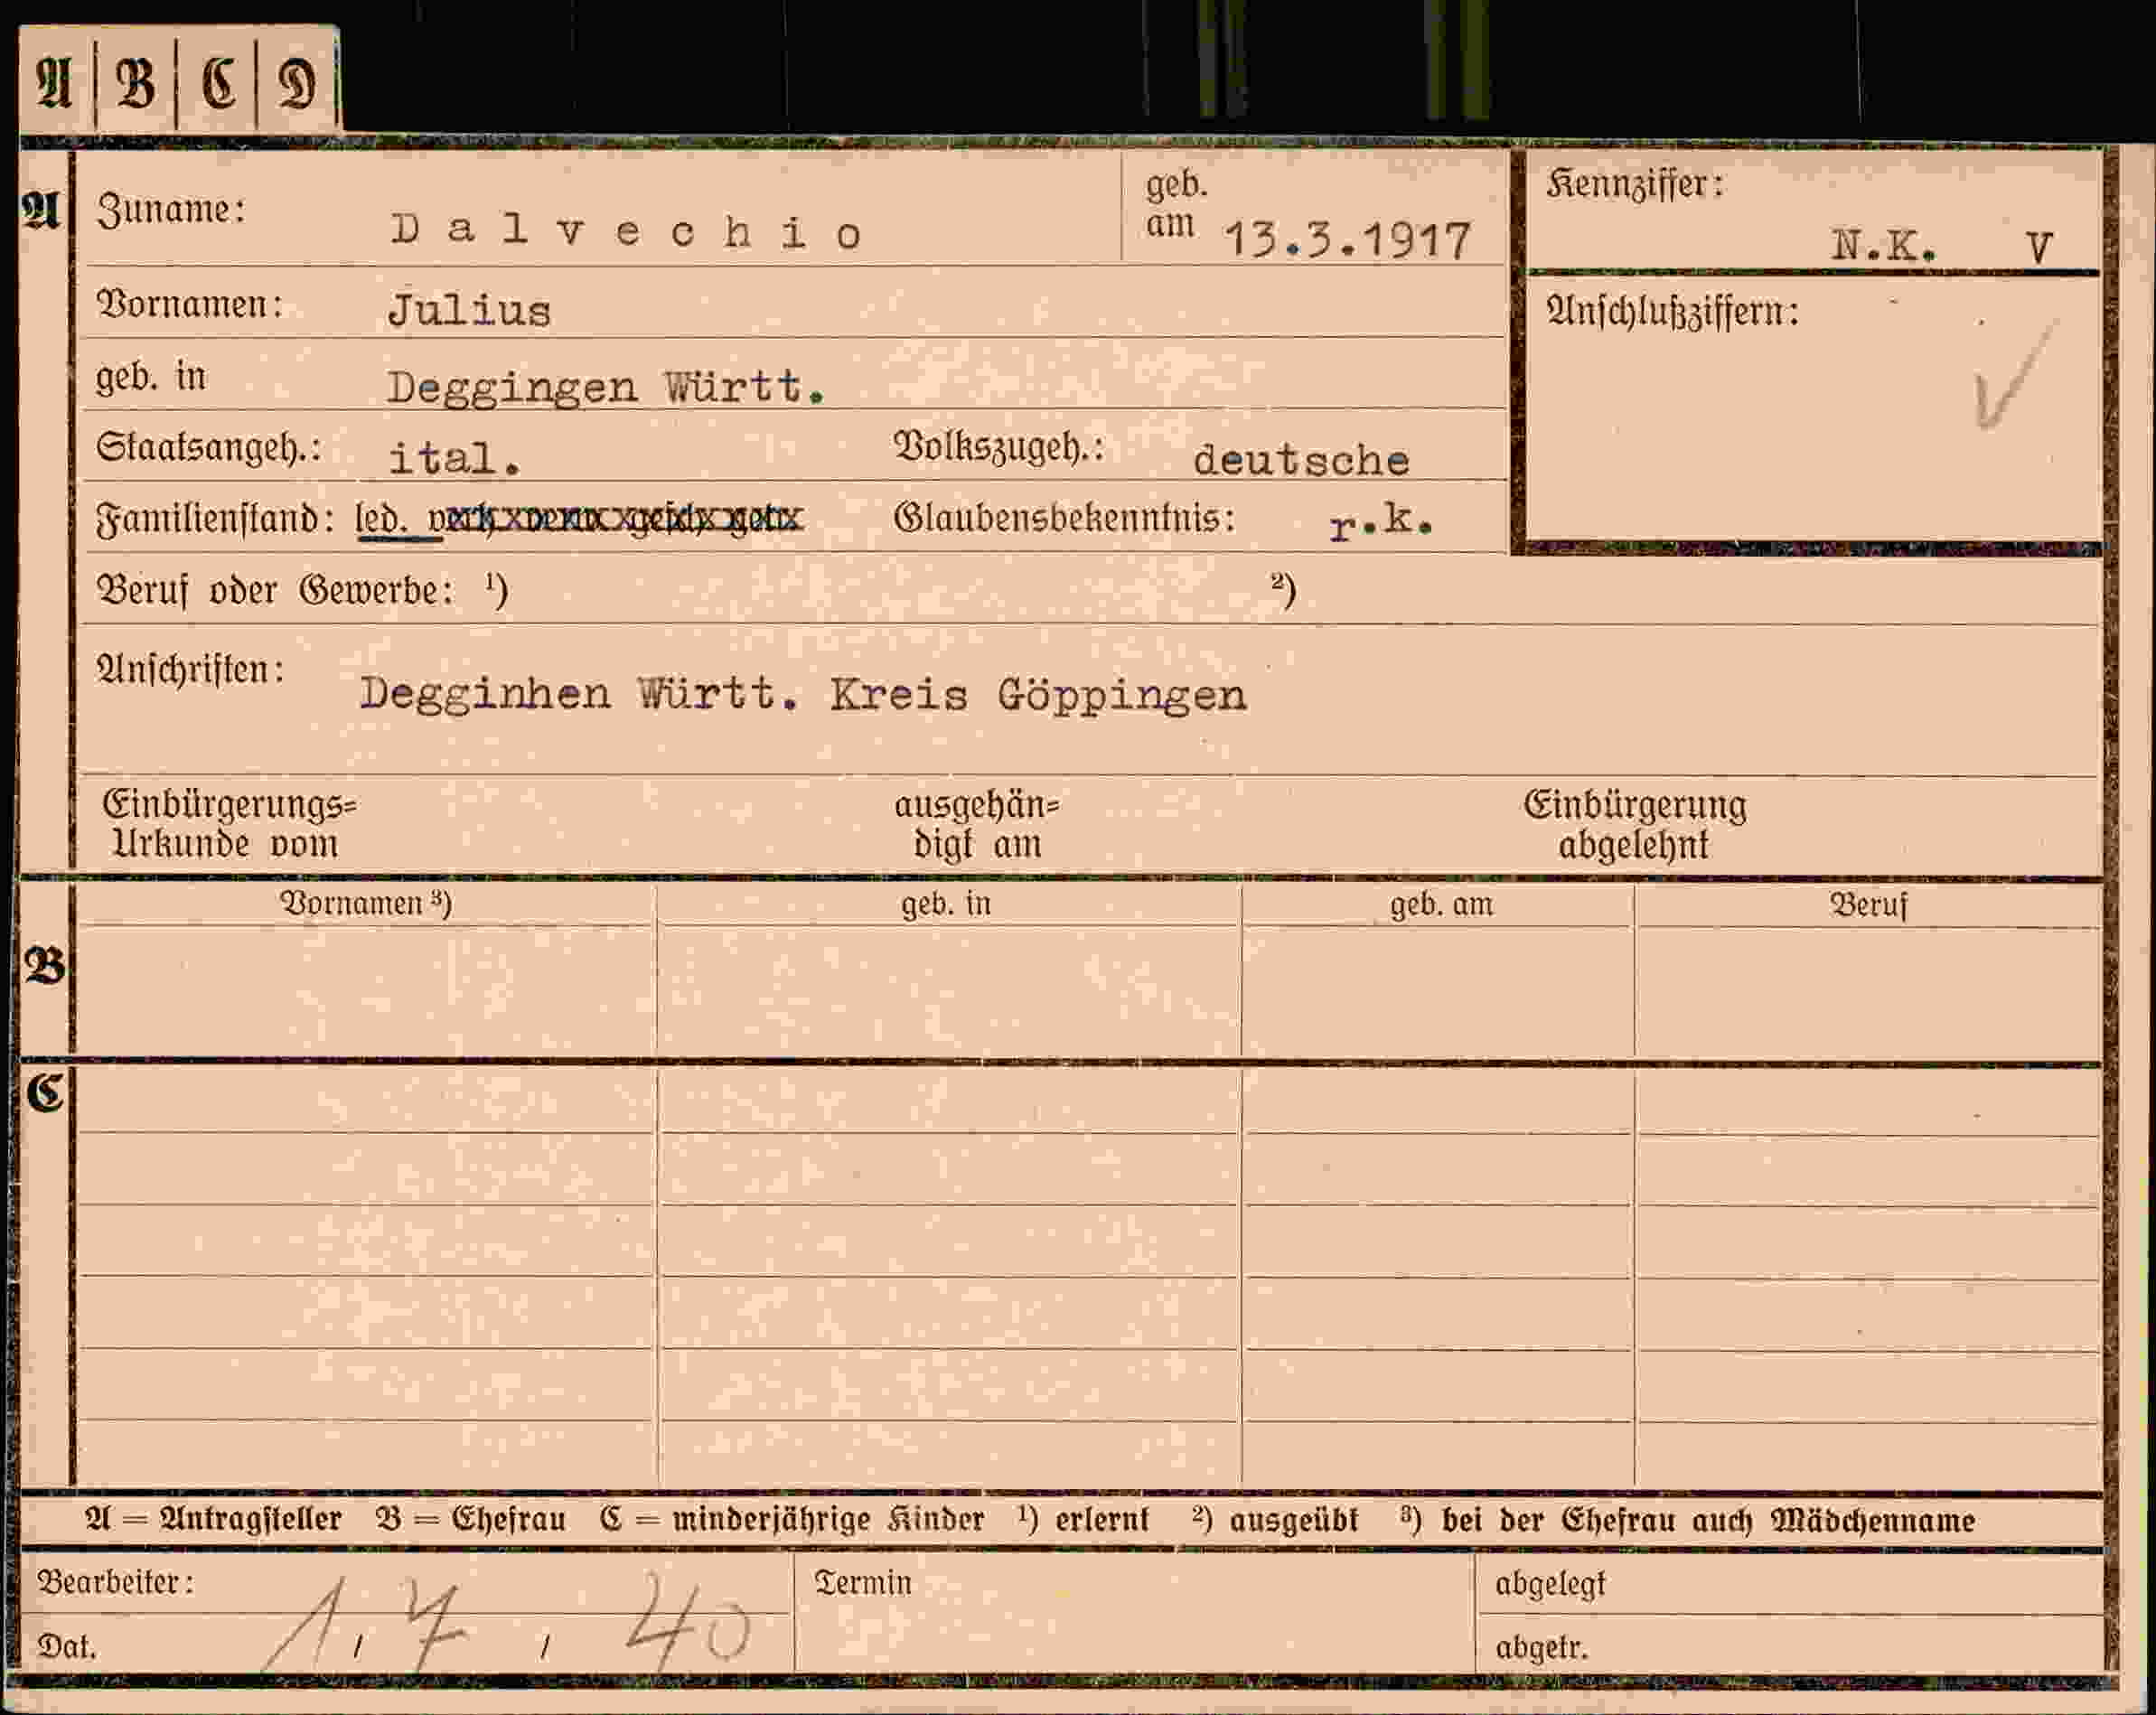 A B C D
A Zuname: Dalvechio geb. am 13.3.1917 Kennziffer: N.K. V
Vornamen: Julius Anschlußziffern:
geb. in Deggingen Württ.
Staatsangeh.: ital. Volkszugeh.: deutsche
Familienstand: led. Glaubensbekenntnis: r.k.
Beruf oder Gewerbe: ¹) ²)
Anschriften: Degginhen Württ. Kreis Göppingen
Einbürgerungs= ausgehän= Einbürgerung
Urkunde vom digt am abgelehnt
Vornamen ³) geb. in geb. am Beruf
B
C
A = Antragsteller B = Ehefrau C = minderjährige Kinder ¹) erlernt ²) ausgeübt ³) bei der Ehefrau auch Mädchenname
Bearbeiter: Termin abgelegt
Dat. 1, 7, 40 abgetr.